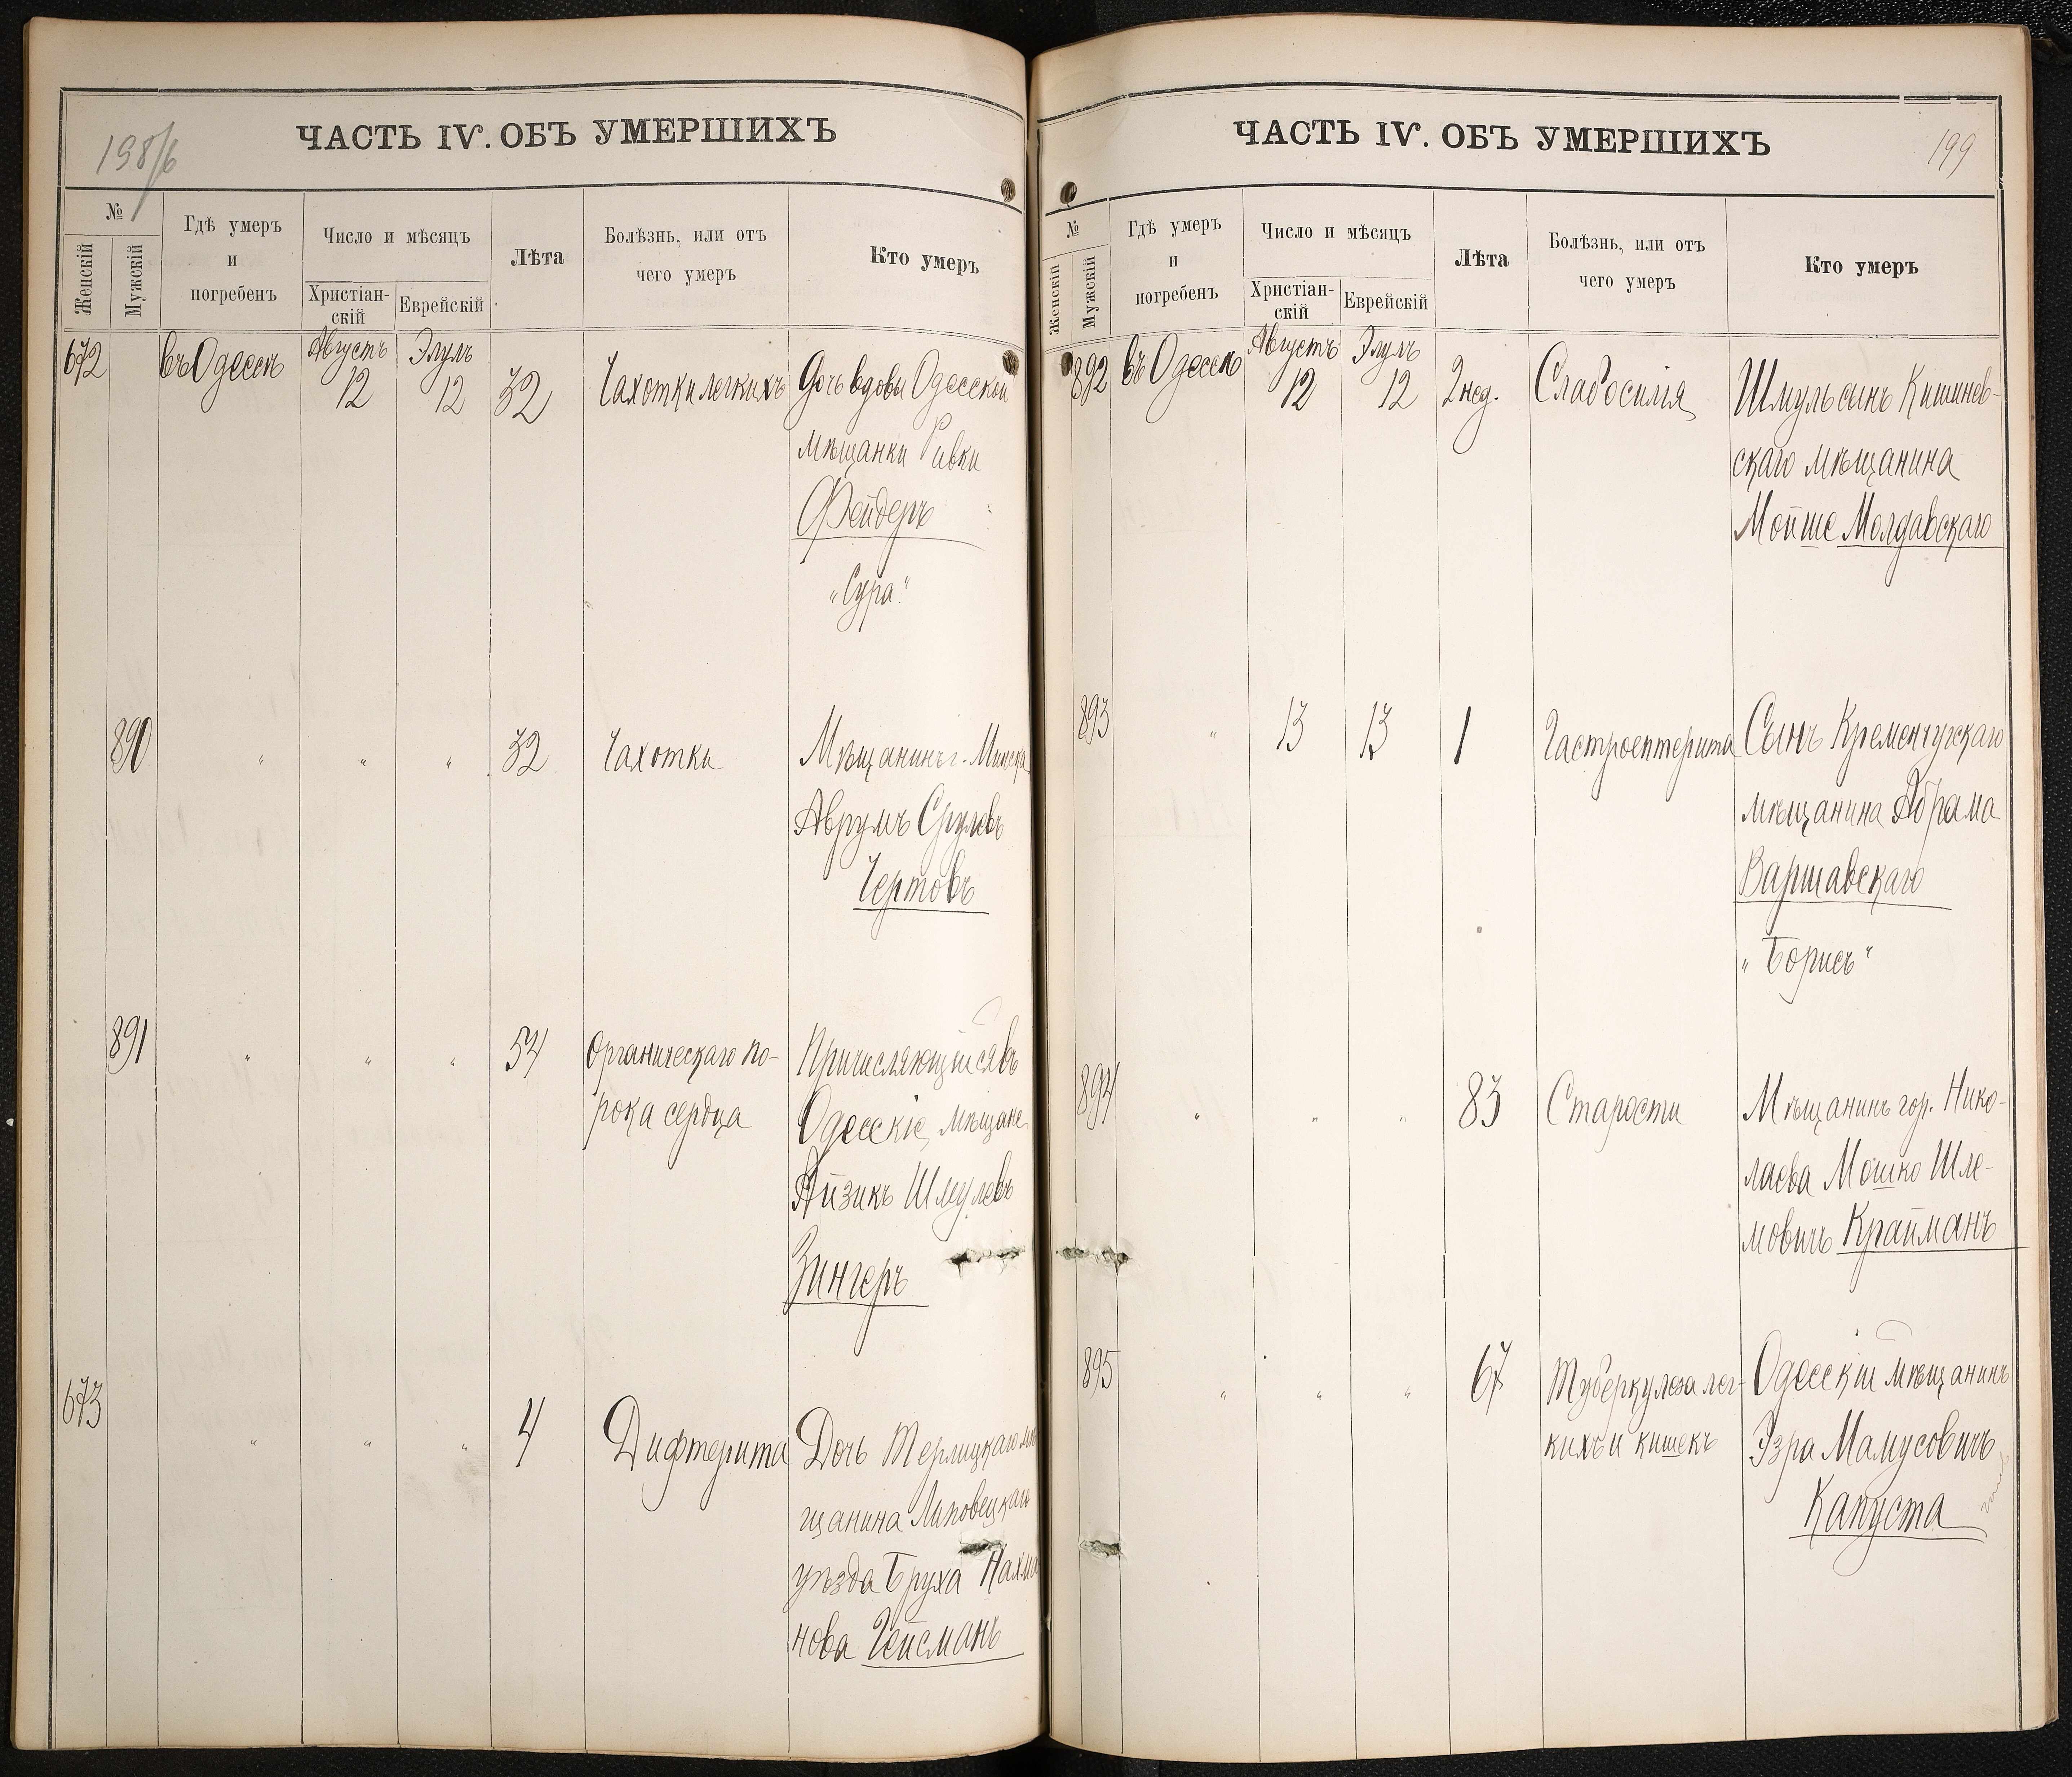 198/6
ЧАСТЬ IV. ОБЪ УМЕРШИХЪ
№
Женскій
Мужскій
Гдѣ умеръ
и
погребенъ
Число и мѣсяцъ
Христіан-
скій
Еврейскій
Лѣта
Болѣзнь, или отъ
чего умеръ
Кто умеръ
672 въ Одессѣ Августъ 12 Элулъ 12 32 Чахотки легкихъ Дочь вдовы Одесской
мѣщанки Ривки
Фейдеръ
"Сура"
890 " " " 32 Чахотки Мѣщанинъ г. Минска
Аврумъ Срулевъ
Чертовъ
891 " " " 54 Органическаго по- Причисляющійся въ
рока сердца Одесскіе мѣщане
Айзикъ Шмулевъ
Зингеръ
673 " " " 4 Дифтерита Дочь Терлицкаго мѣ
щанина Липовецкаго
уѣзда Бруха Нахма
нова Гейсманъ
ЧАСТЬ IV. ОБЪ УМЕРШИХЪ
199
№
Женскій
Мужскій
Гдѣ умеръ
и
погребенъ
Число и мѣсяцъ
Христіан-
скій
Еврейскій
Лѣта
Болѣзнь, или отъ
чего умеръ
Кто умеръ
892 въ Одессѣ Августъ 12 Элулъ 12 2 нед. Слабосилія Шмуль сынъ Кишинев-
скаго мѣщанина
Мойше Молдавскаго
893 " 13 13 1 Гастроентерита Сынъ Кременчугскаго
мѣщанина Абрама
Варшавскаго
"Борисъ"
894 " " " 83 Старости Мѣщанинъ гор. Нико-
лаева Мошко Шле-
мовичъ Крайманъ
895 " " " 67 Туберкулеза лег- Одесскій мѣщанинъ
кихъ и кишекъ Эзра Мамусовичъ
Капуста